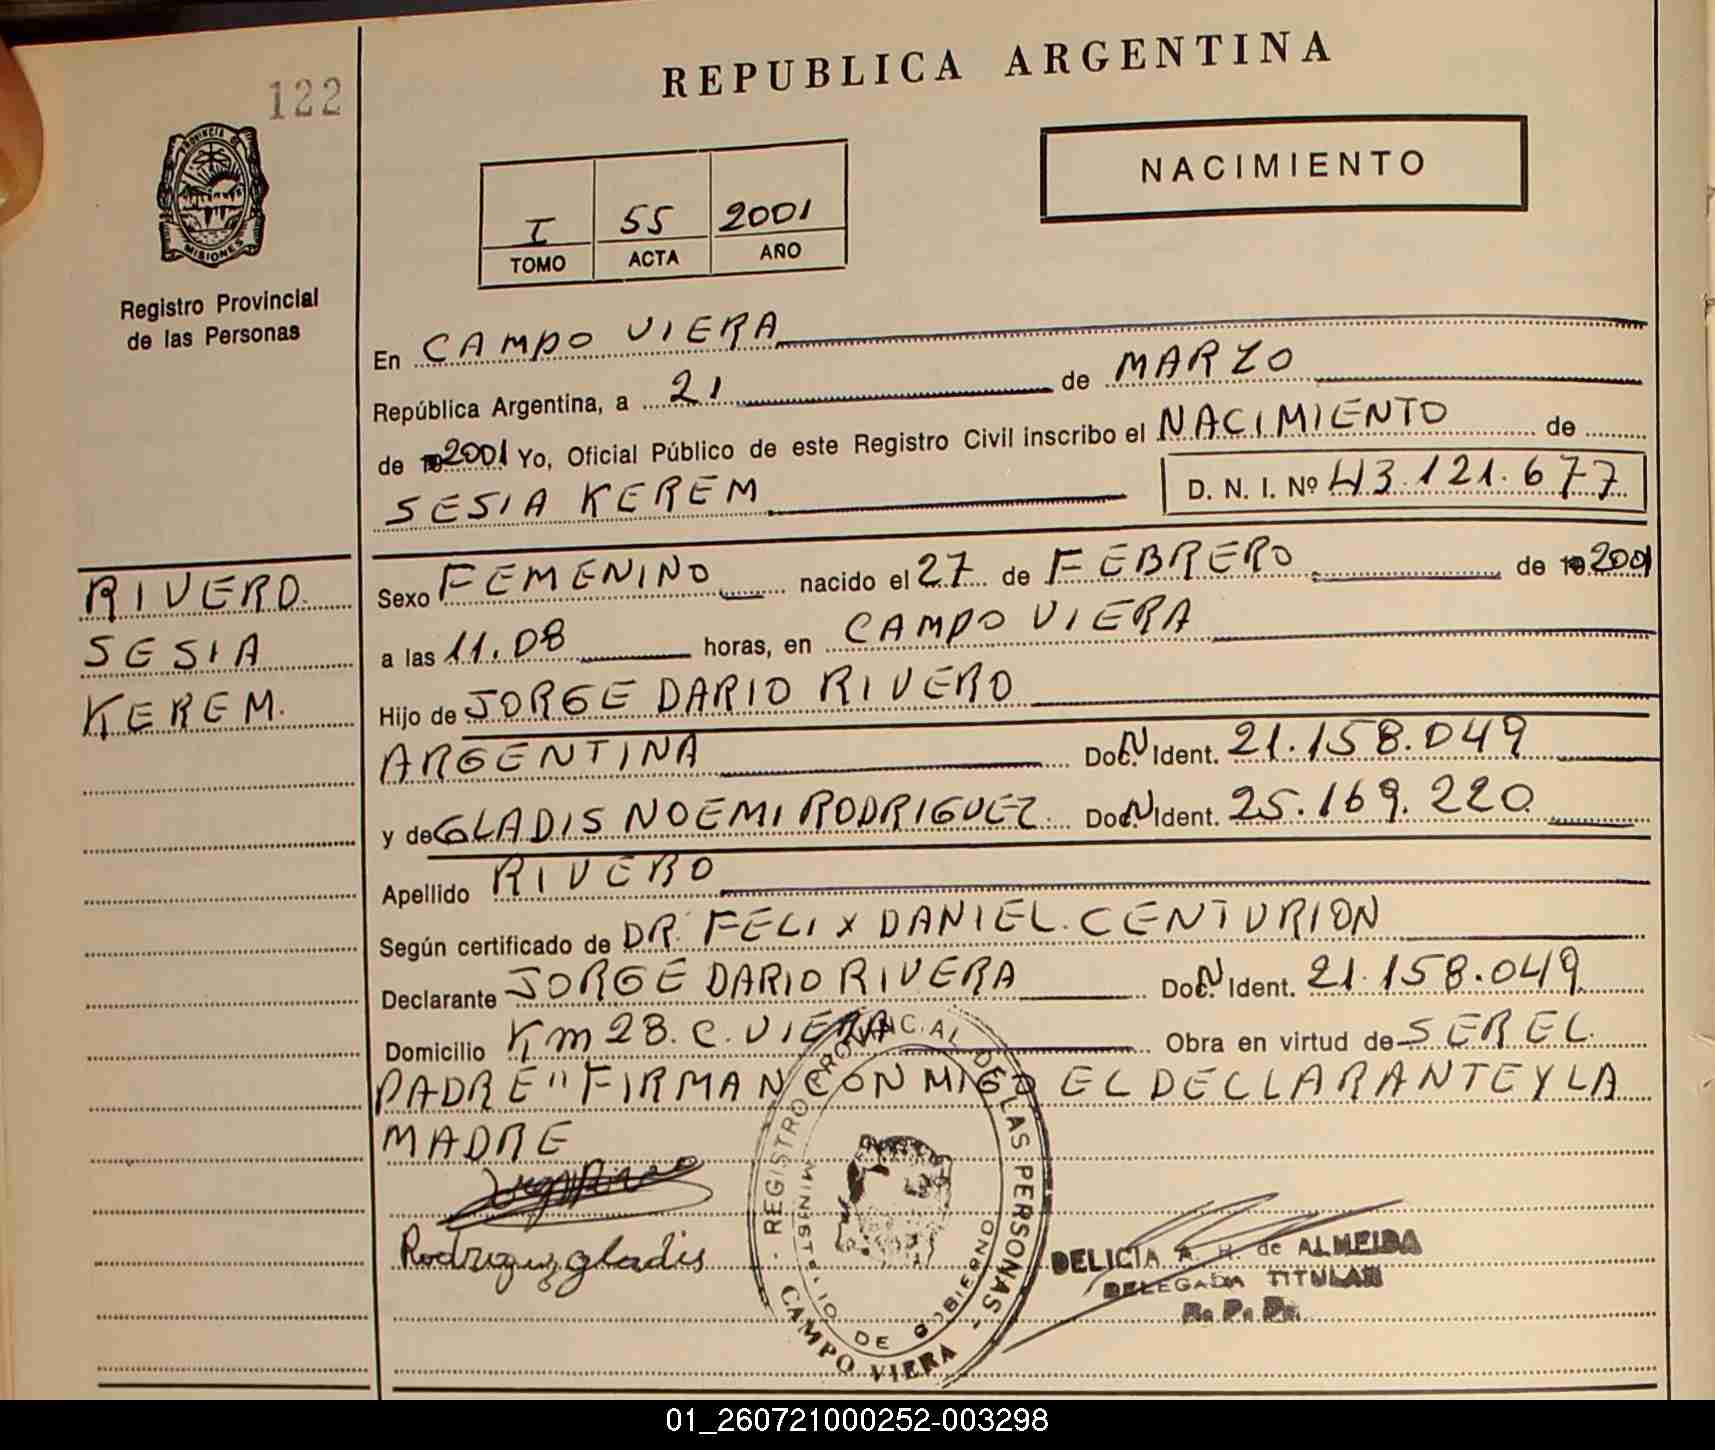 122
REPUBLICA ARGENTINA
NACIMIENTO
PROVINCIA DE
MISIONES
Registro Provincial
de las Personas
I 55 2001
TOMO ACTA AÑO
En CAMPO VIERA
República Argentina, a 21 de MARZO
de 2001 Yo, Oficial Público de este Registro Civil inscribo el NACIMIENTO de
SESIA KEREM D. N. I. Nº 43.121.677
RIVERO
SESIA
KEREM.
Sexo FEMENINO nacido el 27 de FEBRERO de 2001
a las 11.08 horas, en CAMPO VIERA
Hijo de JORGE DARIO RIVERO
ARGENTINA Doc. N Ident. 21.158.049
y de GLADIS NOEMI RODRIGUEZ Doc. N Ident. 25.169.220
Apellido RIVERO
Según certificado de DR. FELIX DANIEL CENTURION
Declarante JORGE DARIO RIVERA Doc. N Ident. 21.158.049
Domicilio Km 28. C. VIERA Obra en virtud de SER EL
PADRE" FIRMAN CONMIGO EL DECLARANTE Y LA
MADRE
Rodriguez gladis
REGISTRO PROVINCIAL DE LAS PERSONAS
MINISTERIO DE GOBIERNO
CAMPO VIERA
DELICIA R. H. de ALMEIDA
DELEGADA TITULAR
R. P. P.
01_260721000252-003298